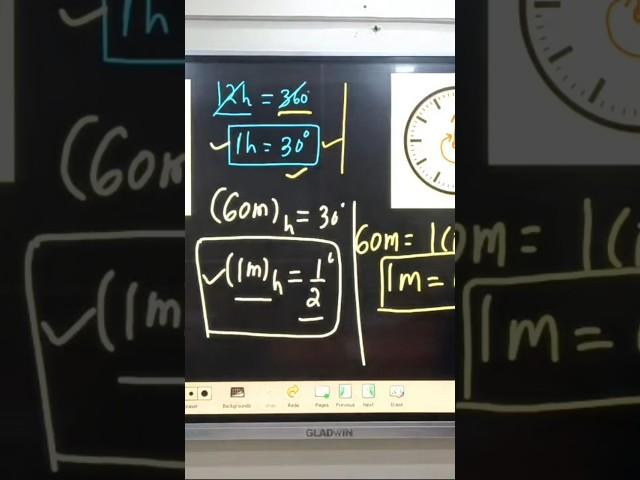 12h = 360°
1h = 30°
(60m)h = 30°
(1m)h = 1/2°
60m = 1(
1m =
Backgrounds
Redo
Pages
Previous
Next
Erase
GLADWIN